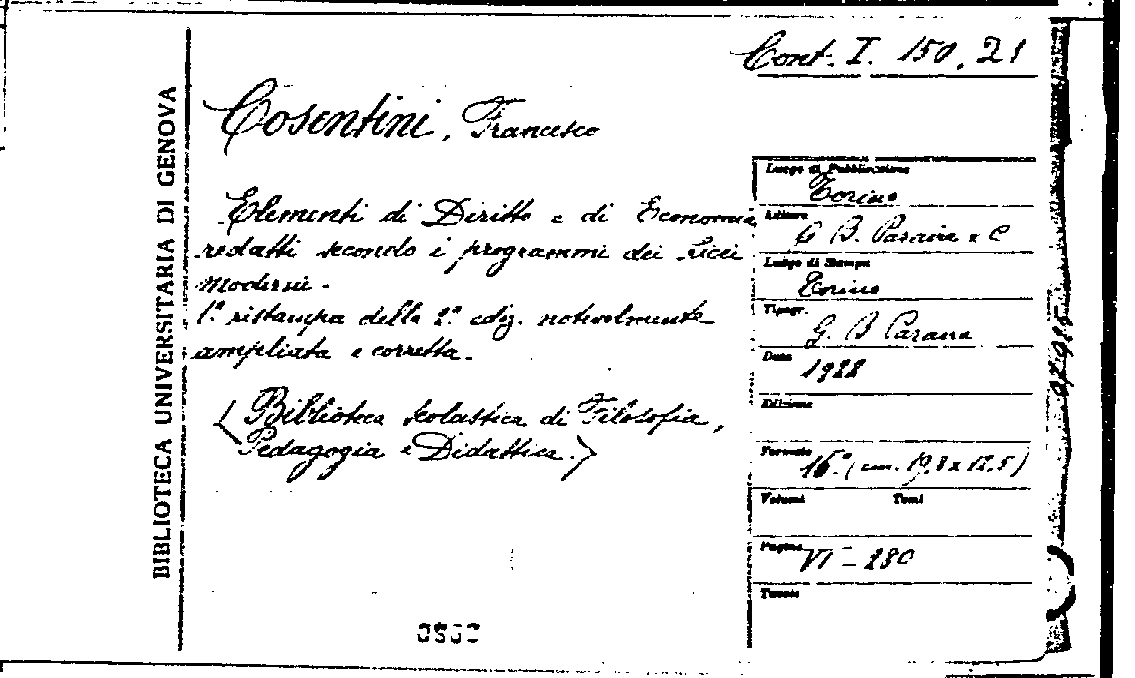 Cont. I. 150. 21
BIBLIOTECA UNIVERSITARIA DI GENOVA
Cosentini, Francesco
Elementi di Diritto e di Economia
redatti secondo i programmi dei Licei
moderni.
1ª ristampa della 2ª ediz. notevolmente
ampliata e corretta.
(Biblioteca scolastica di Filosofia,
Pedagogia e Didattica.)
Luogo di Pubblicazione
Torino
Editore
G. B. Paravia e C
Luogo di Stampa
Torino
Tipogr.
G. B Paravia
Data
1922
Edizione
Formato
16° (cm. 19,8 x 12,5)
Volumi Tomi
Pagine
VI - 280
Tavole